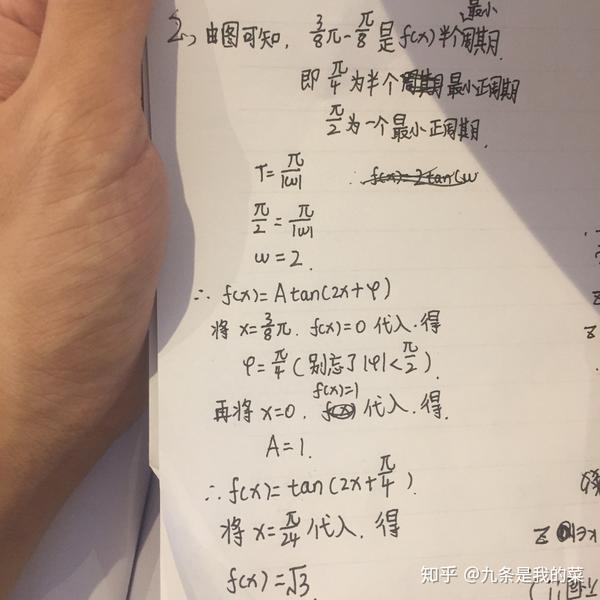 2、由图可知, 3/8π-π/8是f(x)半个最小周期.
即π/4为半个最小正周期
π/2为一个最小正周期.
T=π/|w|
π/2=π/|w|
w=2.
∴ f(x)=Atan(2x+φ)
将x=3/8π. f(x)=0代入.得
φ=π/4(别忘了|φ|<π/2).
再将x=0. f(x)=1代入.得.
A=1.
∴f(x)=tan(2x+π/4).
将x=π/24代入.得
f(x)=√3.
知乎 @九条是我的菜